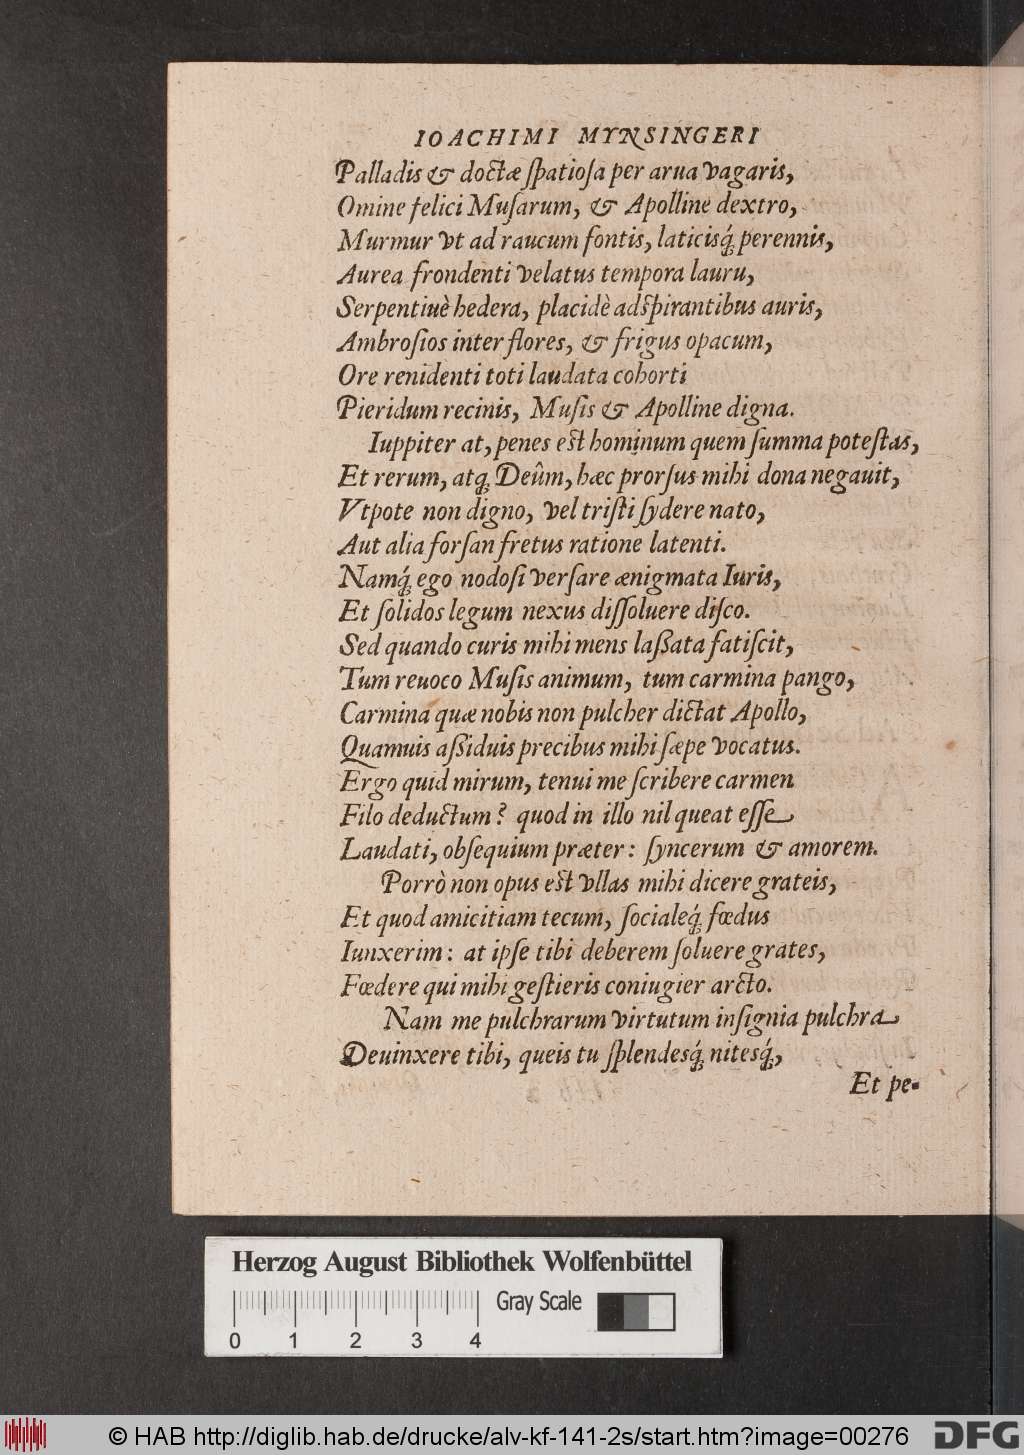 IOACHIMI MYNSINGERI
Palladis & doctæ ſpatioſa per arua vagaris,
Omine felici Muſarum, & Apolline dextro,
Murmur vt ad raucum fontis, laticisq́; perennis,
Aurea frondenti velatus tempora lauru,
Serpentiuè hedera, placidè adſpirantibus auris,
Ambroſios inter flores, & frigus opacum,
Ore renidenti toti laudata cohorti
Pieridum recinis, Muſis & Apolline digna.
Iuppiter at, penes eſt hominum quem ſumma poteſtas,
Et rerum, atq; Deûm, hæc prorſus mihi dona negauit,
Vtpote non digno, vel triſti ſydere nato,
Aut alia forſan fretus ratione latenti.
Namq́; ego nodoſi verſare ænigmata Iuris,
Et ſolidos legum nexus diſſoluere diſco.
Sed quando curis mihi mens laßata fatiſcit,
Tum reuoco Muſis animum, tum carmina pango,
Carmina quæ nobis non pulcher dictat Apollo,
Quamuis aßiduis precibus mihi ſæpe vocatus.
Ergo quid mirum, tenui me ſcribere carmen
Filo deductum? quod in illo nil queat eſſe
Laudati, obſequium præter: ſyncerum & amorem.
Porrò non opus eſt vllas mihi dicere grateis,
Et quod amicitiam tecum, ſocialeq́; fœdus
Iunxerim: at ipſe tibi deberem ſoluere grates,
Fœdere qui mihi geſtieris coniugier arcto.
Nam me pulchrarum virtutum inſignia pulchra
Deuinxere tibi, queis tu ſplendesq́; nitesq́;,
Et pe-
Herzog August Bibliothek Wolfenbüttel
Gray Scale
0 1 2 3 4
© HAB http://diglib.hab.de/drucke/alv-kf-141-2s/start.htm?image=00276
DFG